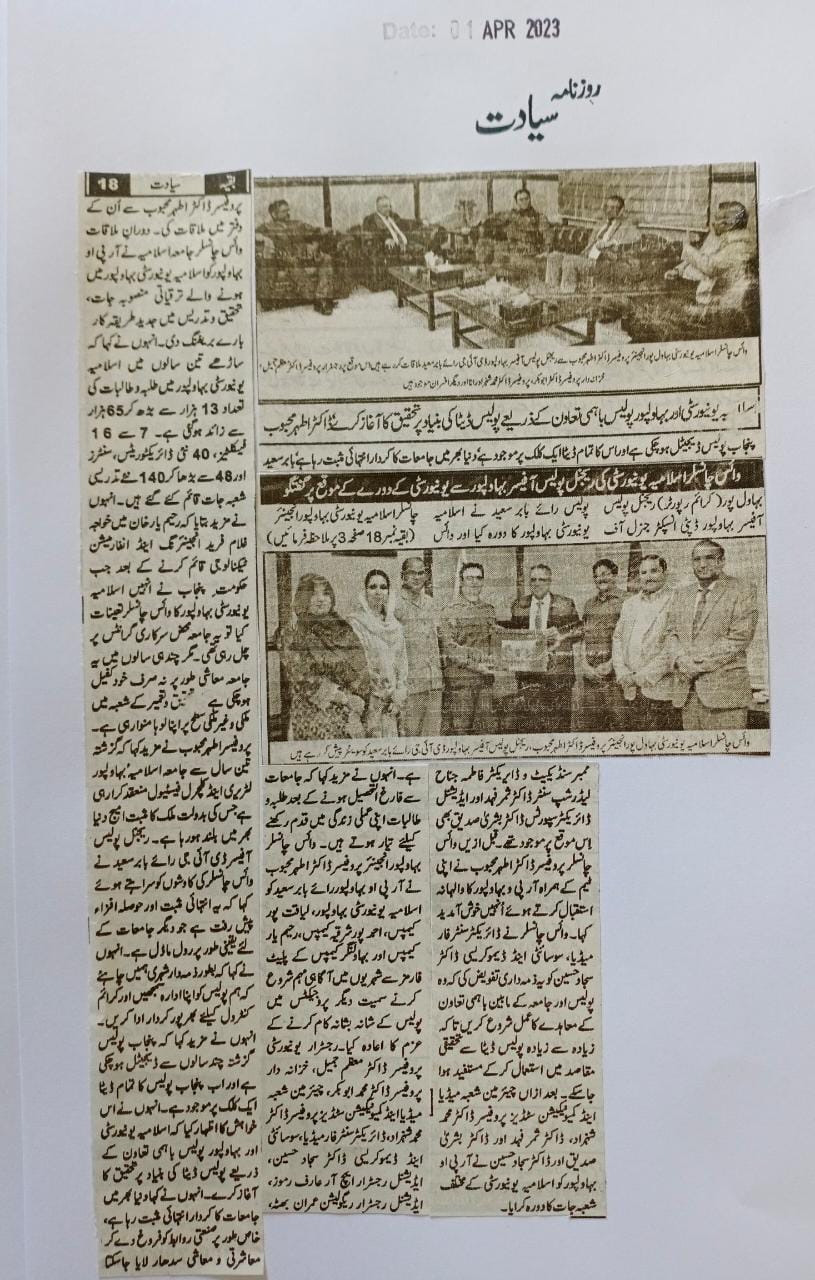 Date: 01 APR 2023
روزنامہ
سیادت
وائس چانسلر اسلامیہ یونیورسٹی بہاول پور انجینئر پروفیسر ڈاکٹر اطہر محبوب سے ریجنل پولیس آفیسر بہاولپور ڈی آئی جی رائے بابر سعید ملاقات کر رہے ہیں اس موقع پر رجسٹرار پروفیسر ڈاکٹر معظم جمیل،
خزانہ دار پروفیسر ڈاکٹر ابوبکر، پروفیسر ڈاکٹر محمد شہزاد رانا اور دیگر افسران موجود ہیں
یہ یونیورسٹی اور بہاولپور پولیس باہمی تعاون کے ذریعے پولیس ڈیٹا کی بنیاد پر تحقیق کا آغاز کرے، ڈاکٹر اطہر محبوب
پنجاب پولیس ڈیجیٹل ہو چکی ہے اور اس کا تمام ڈیٹا ایک کلک پر موجود ہے، دنیا بھر میں جامعات کا کردار انتہائی مثبت رہا ہے، بابر سعید
وائس چانسلر اسلامیہ یونیورسٹی کی ریجنل پولیس آفیسر بہاولپور سے یونیورسٹی کے دورے کے موقع پر گفتگو
بہاول پور (کرائم رپورٹر) ریجنل پولیس
آفیسر بہاولپور ڈپٹی انسپکٹر جنرل آف
پولیس رائے بابر سعید نے اسلامیہ
یونیورسٹی بہاولپور کا دورہ کیا اور وائس
چانسلر اسلامیہ یونیورسٹی بہاولپور انجینئر
(بقیہ نمبر 18 صفحہ 3 پر ملاحظہ فرمائیں)
وائس چانسلر اسلامیہ یونیورسٹی بہاول پور انجینئر پروفیسر ڈاکٹر اطہر محبوب، ریجنل پولیس آفیسر بہاولپور ڈی آئی جی رائے بابر سعید کو سوینئر پیش کر رہے ہیں
بقیہ سیادت 18
پروفیسر ڈاکٹر اطہر محبوب سے اُن کے
دفتر میں ملاقات کی۔ دوران ملاقات
وائس چانسلر جامعہ اسلامیہ نے آر پی او
بہاولپور کو اسلامیہ یونیورسٹی بہاولپور میں
ہونے والے ترقیاتی منصوبہ جات،
تحقیق و تدریس میں جدید طریقہ کار
بارے بریفنگ دی۔ انہوں نے کہا کہ
ساڑھے تین سالوں میں اسلامیہ
یونیورسٹی بہاولپور میں طلبہ و طالبات کی
تعداد 13 ہزار سے بڑھ کر 65 ہزار
سے زائد ہو گئی ہے۔ 7 سے 16
فیکلٹیز، 40 نئی ڈائریکٹوریٹس، سنٹرز
اور 48 سے بڑھا کر 140 نئے تدریسی
شعبہ جات قائم کئے گئے ہیں۔ انہوں
نے مزید بتایا کہ رحیم یار خان میں خواجہ
غلام فرید انجینئرنگ اینڈ انفارمیشن
ٹیکنالوجی قائم کرنے کے بعد جب
حکومت پنجاب نے انہیں اسلامیہ
یونیورسٹی بہاولپور کا وائس چانسلر تعینات
کیا تو یہ جامعہ محض سرکاری گرانٹس پر
چل رہی تھی۔ مگر چند ہی سالوں میں یہ
جامعہ معاشی طور پر نہ صرف خود کفیل
ہو چکی ہے و تعمیر کے شعبہ میں
ملکی و غیر ملکی سطح پر اپنا لوہا منوا رہی ہے۔
پروفیسر اطہر محبوب نے مزید کہا کہ گزشتہ
تین سال سے جامعہ اسلامیہ بہاولپور
لٹریری اینڈ کلچرل فیسٹیول منعقد کرا رہی
ہے جس کی بدولت ملک کا مثبت امیج دنیا
بھر میں بلند ہو رہا ہے۔ ریجنل پولیس
آفیسر ڈی آئی جی رائے بابر سعید نے
وائس چانسلر کی کاوشوں کو سراہتے ہوئے
کہا کہ یہ انتہائی مثبت اور حوصلہ افزاء
پیش رفت ہے جو دیگر جامعات کے
لئے یقینی طور پر رول ماڈل ہے۔ انہوں
نے کہا کہ بطور ذمہ دار شہری ہمیں چاہئے
کہ ہم پولیس کو اپنا ادارہ سمجھیں اور کرائم
کنٹرول کیلئے بھرپور کردار ادا کریں۔
انہوں نے مزید کہا کہ پنجاب پولیس
گزشتہ چند سالوں سے ڈیجیٹل ہو چکی
ہے اور اب پنجاب پولیس کا تمام ڈیٹا
ایک کلک پر موجود ہے۔ انہوں نے اس
خواہش کا اظہار کیا کہ اسلامیہ یونیورسٹی
اور بہاولپور پولیس باہمی تعاون کے
ذریعے پولیس ڈیٹا کی بنیاد پر تحقیق کا
آغاز کرے۔ انہوں نے کہا دنیا بھر میں
جامعات کا کردار انتہائی مثبت رہا ہے،
خاص طور پر صنعتی روابط کو فروغ دے کر
معاشرتی و معاشی سدھار لایا جا سکتا
ہے۔ انہوں نے مزید کہا کہ جامعات
سے فارغ التحصیل ہونے کے بعد طلبہ و
طالبات اپنی عملی زندگی میں قدم رکھنے
کیلئے تیار ہوتے ہیں۔ وائس چانسلر
بہاولپور انجینئر پروفیسر ڈاکٹر اطہر محبوب
نے آر پی او بہاولپور رائے بابر سعید کو
اسلامیہ یونیورسٹی بہاولپور، لیاقت پور
کیمپس، احمد پور شرقیہ کیمپس، رحیم یار
کیمپس اور بہاولنگر کیمپس کے پلیٹ
فارمز سے شہریوں میں آگاہی مہم شروع
کرنے سمیت دیگر پروجیکٹس میں
پولیس کے شانہ بشانہ کام کرنے کے
عزم کا اعادہ کیا۔ رجسٹرار یونیورسٹی
پروفیسر ڈاکٹر معظم جمیل، خزانہ دار
پروفیسر ڈاکٹر محمد ابوبکر، چیئرمین شعبہ
میڈیا اینڈ کمیونیکیشن سٹڈیز پروفیسر ڈاکٹر
محمد شہزاد، ڈائریکٹر سنٹر فار میڈیا، سوسائٹی
اینڈ ڈیموکریسی ڈاکٹر سجاد حسین،
ایڈیشنل رجسٹرار ایچ آر عارف رموز،
ایڈیشنل رجسٹرار ریگولیشن عمران بھٹہ،
ممبر سنڈیکیٹ و ڈائریکٹر فاطمہ جناح
لیڈرشپ سنٹر ڈاکٹر ثمر فہد اور ایڈیشنل
ڈائریکٹر سپورٹس ڈاکٹر بشریٰ صدیق بھی
اس موقع پر موجود تھے۔ قبل ازیں وائس
چانسلر پروفیسر ڈاکٹر اطہر محبوب نے اپنی
ٹیم کے ہمراہ آر پی او بہاولپور کا والہانہ
استقبال کرتے ہوئے اُنہیں خوش آمدید
کہا۔ وائس چانسلر نے ڈائریکٹر سنٹر فار
میڈیا، سوسائٹی اینڈ ڈیموکریسی ڈاکٹر
سجاد حسین کو یہ ذمہ داری تفویض کی کہ وہ
پولیس اور جامعہ کے مابین باہمی تعاون
کے معاہدے کا عمل شروع کریں تاکہ
زیادہ سے زیادہ پولیس ڈیٹا سے تحقیقی
مقاصد میں استعمال کر کے مستفید ہوا
جا سکے۔ بعد ازاں چیئرمین شعبہ میڈیا
اینڈ کمیونیکیشن سٹڈیز پروفیسر ڈاکٹر محمد
شہزاد، ڈاکٹر ثمر فہد اور ڈاکٹر بشریٰ
صدیق اور ڈاکٹر سجاد حسین نے آر پی او
بہاولپور کو اسلامیہ یونیورسٹی کے مختلف
شعبہ جات کا دورہ کرایا۔